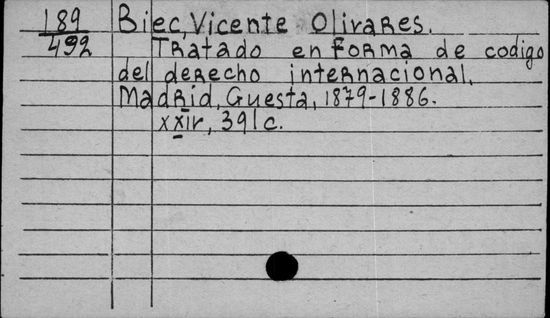 189 Biec, Vicente Olivares.
492 Tratado en forma de codigo
del derecho internacional.
Madrid, Guesta, 1879-1886.
xxiv, 391c.